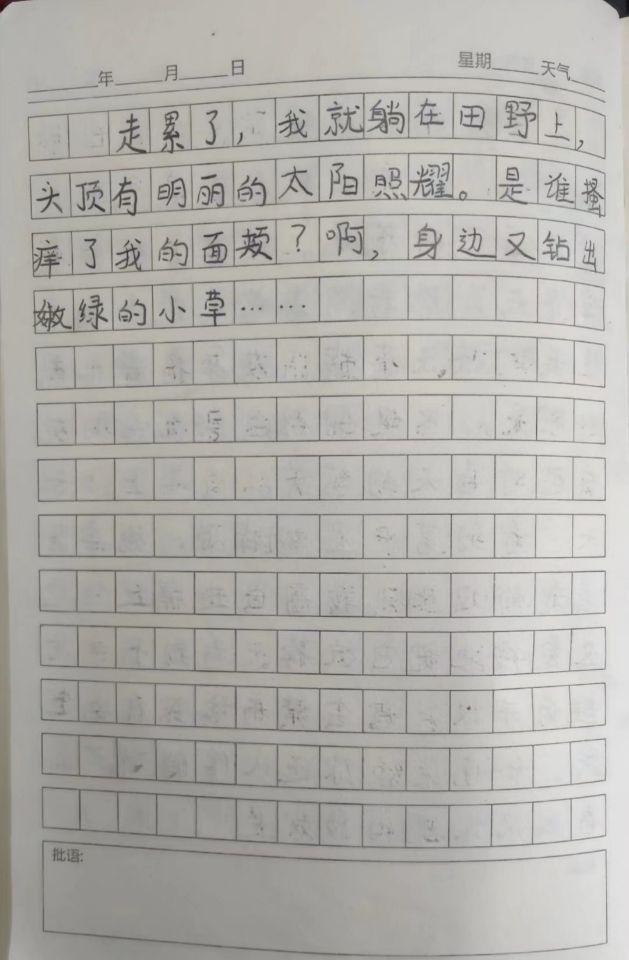 年 月 日 星期 天气
走累了，我就躺在田野上，
头顶有明丽的太阳照耀。是谁搔
痒了我的面颊？啊，身边又钻出
嫩绿的小草……
批语: